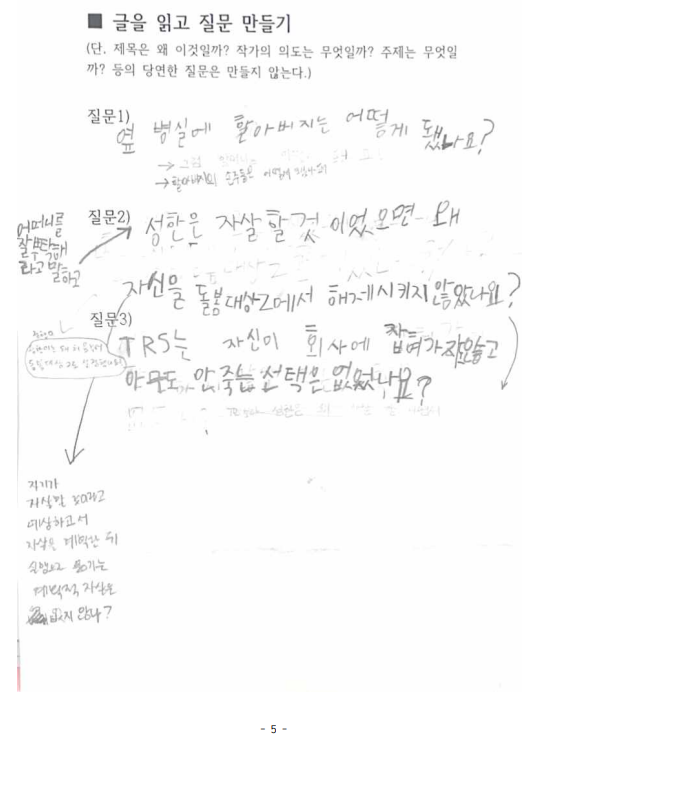 ■ 글을 읽고 질문 만들기
(단, 제목은 왜 이것일까? 작가의 의도는 무엇일까? 주제는 무엇일
까? 등의 당연한 질문은 만들지 않는다.)
질문1)
옆 병실에 할아버지는 어떻게 됐나요?
→ 그럼
→ 할아버지의 손주들은 어떻게 됐나요
어머니를
잘부탁해
라고 말하고
질문2)
성한은 자살 할 것 이었으면 왜
자신을 돌봄대상그에서 해제시키지 않았나요?
질문3)
TRS는 자신이 회사에 잡혀가지않고
아무도 안 죽는 선택은 없었나요?
자기가
자살할 거라고
예상하고서
자살을 계획한 뒤
계획적 자살은
없지 않나?
- 5 -